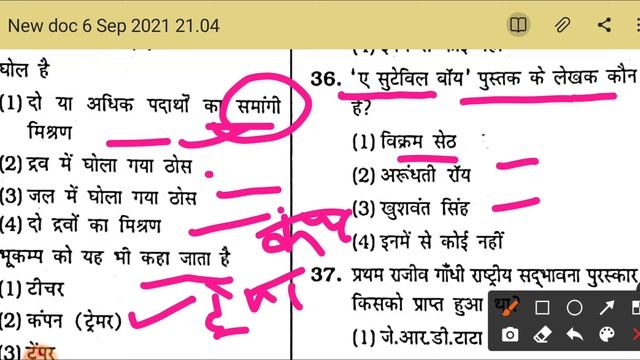 New doc 6 Sep 2021 21.04
घोल है
(1) दो या अधिक पदार्थों का समांगी
मिश्रण
(2) द्रव में घोला गया ठोस
(3) जल में घोला गया ठोस
(4) दो द्रवों का मिश्रण
भूकम्प को यह भी कहा जाता है
(1) टीचर
(2) कंपन (ट्रेमर)
(3) टेंपर
36. ‘ए सुटेविल बॉय’ पुस्तक के लेखक कौन
है?
(1) विक्रम सेठ
(2) अरूंधती रॉय
(3) खुशवंत सिंह
(4) इनमें से कोई नहीं
37. प्रथम राजीव गाँधी राष्ट्रीय सद्भावना पुरस्कार
किसको प्राप्त हुआ था?
(1) जे.आर.डी.टाटा